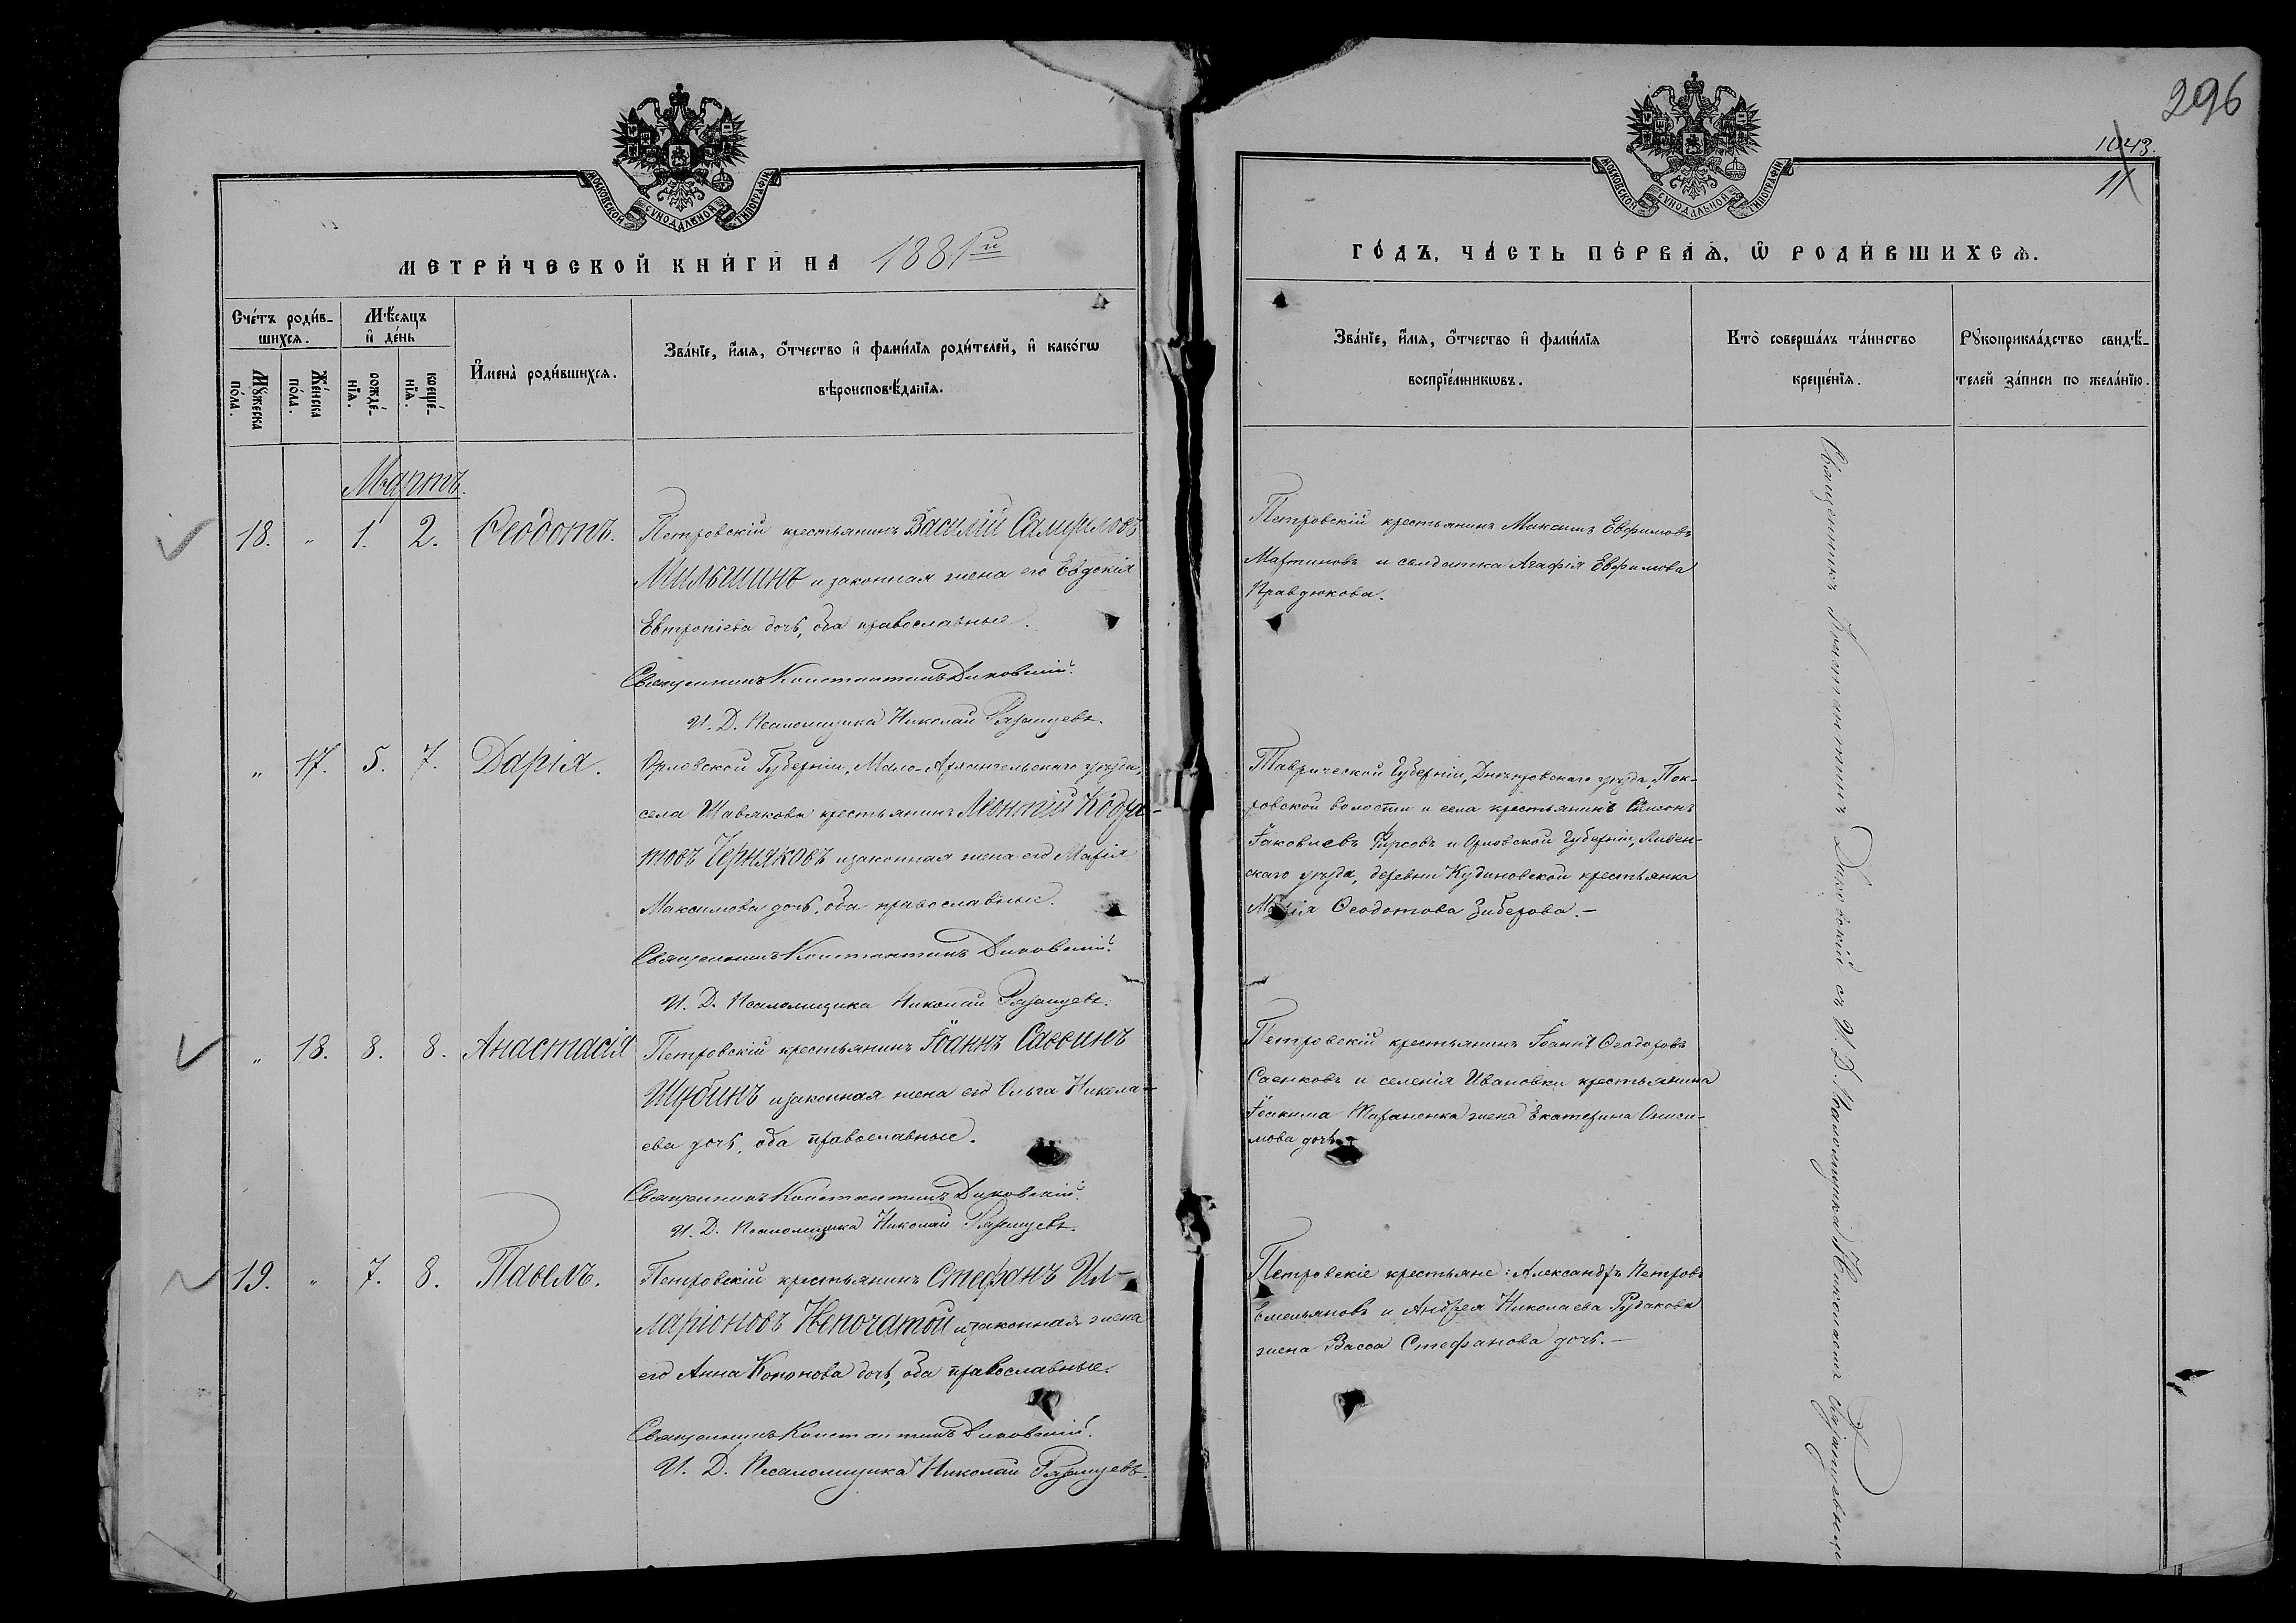 296
1043.
11
МОСКОВСКОЙ СѴНОДАЛЬНОЙ ТИПОГРАФІИ
МОСКОВСКОЙ СѴНОДАЛЬНОЙ ТИПОГРАФІИ
МЕТРИ́ЧЕСКОЙ КНИ́ГИ НА 1881й
ГО́ДЪ, ЧА́СТЬ ПЕ́РВАѦ, Ѽ РОДИ́ВШИХСѦ.
Сче́тъ роди́в-
шихсѧ.
Мѣ́сѧцъ
и҆ де́нь
Мꙋ́жеска по́ла.
Же́нска по́ла.
рожде́-нїѧ.
креще́-нїѧ.
И҆мена̀ роди́вшихсѧ.
Зва́нїе, и҆́мѧ, ѻ҆́тчество и҆ фами́лїѧ роди́телей, и҆ како́гѡ
вѣроисповѣ́данїѧ.
Зва́нїе, и҆́мѧ, ѻ҆́тчество и҆ фами́лїѧ
воспрїе́мникѡвъ.
Кто̀ соверша́лъ та́инство
креще́нїѧ.
Рꙋкоприкла́дство свидѣ́-
телей за́писи по жела́нїю.
Мартъ.
18. " 1. 2. Ѳеодотъ.
Петровскій крестьянинъ Василій Самуиловъ
Мильшинъ и законная жена его Евдокія
Евтропіева дочь, оба православные.
Священникъ Константинъ Диковскій.
И. Д. Псаломщика Николай Рязанцевъ.
Петровскій крестьянинъ Максимъ Евфимовъ
Мартиновъ и солдатка Агафія Евфимова
Правдюкова.
" 17. 5. 7. Дарія.
Орловской Губерніи, Мало-Архангельскаго уѣзда,
села крестьянинъ Леонтій Кодра-
товъ Черняковъ и законная жена его Марія
Максимова дочь, оба православные.
Священникъ Константинъ Диковскій.
И. Д. Псаломщика Николай Рязанцевъ.
Таврической Губерніи, Днѣпровскаго уѣзда, Пок-
ровской волости и села крестьянинъ Симеонъ
Іаковлевъ Фирсовъ и Орловской Губерніи, Ливен-
скаго уѣзда, деревни Кудиновской крестьянка
Марія Ѳеодотова Зиберова.—
" 18. 8. 8. Анастасія
Петровскій крестьянинъ Іоаннъ Саввинъ
Шубинъ и законная жена его Ольга Никола-
ева дочь, оба православные.
Священникъ Константинъ Диковскій.
И. Д. Псаломщика Николай Рязанцевъ.
Петровскій крестьянинъ Іоаннъ Ѳеодоровъ
Саенковъ и селенія Ивановки крестьянина
Іоакима жена Екатерина Ониси-
мова дочь.—
19. " 7. 8. Павелъ.
Петровскій крестьянинъ Стефанъ Ил-
ларіоновъ Непочатой и законная жена
его Анна Кононова дочь, оба православные.
Священникъ Константинъ Диковскій.
И. Д. Псаломщика Николай Рязанцевъ.
Петровскіе крестьяне: Александръ Петровъ
Емельяновъ и Андрея Николаева Рудакова
жена Васса Стефанова дочь.—
Священникъ Константинъ Диковскій съ И. Д. Псаломщика Николаемъ Рязанцевымъ